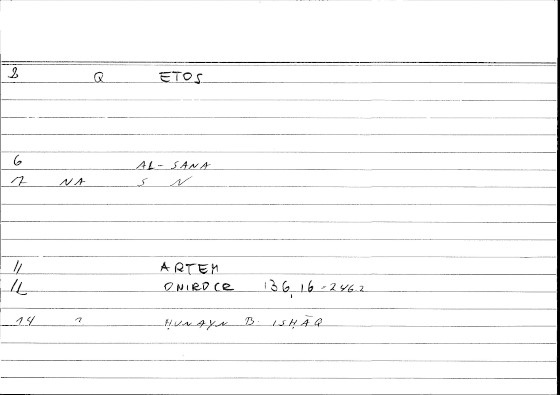 B Q ETOS
6 AL-SANA
7 NA S N
11 ARTEM
12 ONIROCR 136,16-246.2
14 2 ḤUNAYN B. ISḤĀQ